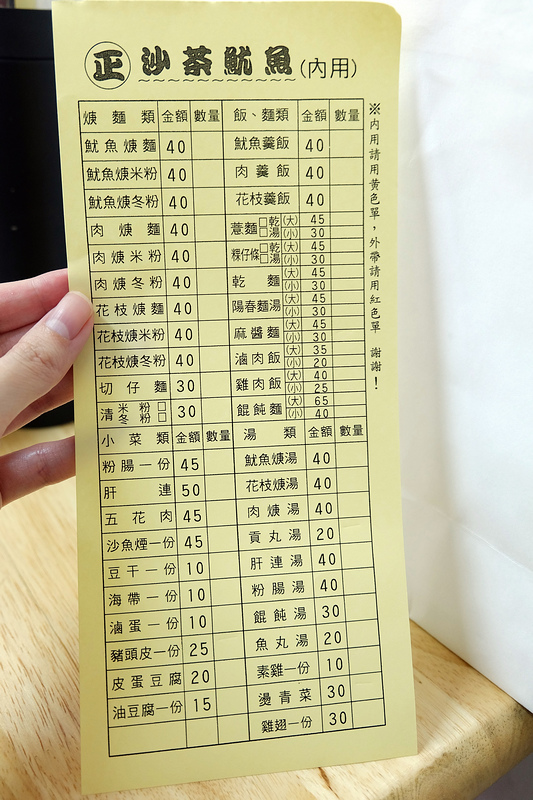 正 沙茶魷魚(內用)
焿麵類 金額 數量 飯、麵類 金額 數量
魷魚焿麵 40 魷魚羹飯 40
魷魚焿米粉 40 肉羹飯 40
魷魚焿冬粉 40 花枝羹飯 40
肉焿麵 40 薏麵 □乾 □湯 (大) 45 (小) 30
肉焿米粉 40 粿仔條 □乾 □湯 (大) 45 (小) 30
肉焿冬粉 40 乾麵 (大) 45 (小) 30
花枝焿麵 40 陽春麵湯 (大) 45 (小) 30
花枝焿米粉 40 麻醬麵 (大) 45 (小) 30
花枝焿冬粉 40 滷肉飯 (大) 35 (小) 20
切仔麵 30 雞肉飯 (大) 40 (小) 25
清 米粉□ 冬粉□ 30 餛飩麵 (大) 65 (小) 40
小菜類 金額 數量 湯類 金額 數量
粉腸一份 45 魷魚焿湯 40
肝連 50 花枝焿湯 40
五花肉 45 肉焿湯 40
沙魚煙一份 45 貢丸湯 20
豆干一份 10 肝連湯 40
海帶一份 10 粉腸湯 40
滷蛋一份 10 餛飩湯 30
豬頭皮一份 25 魚丸湯 20
皮蛋豆腐 20 素雞一份 10
油豆腐一份 15 燙青菜 30
雞翅一份 30
※內用請用黃色單，外帶請用紅色單 謝謝！